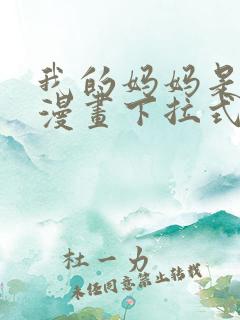 我的妈妈是
漫畫下拉式
杜一力
未经同意禁止转载